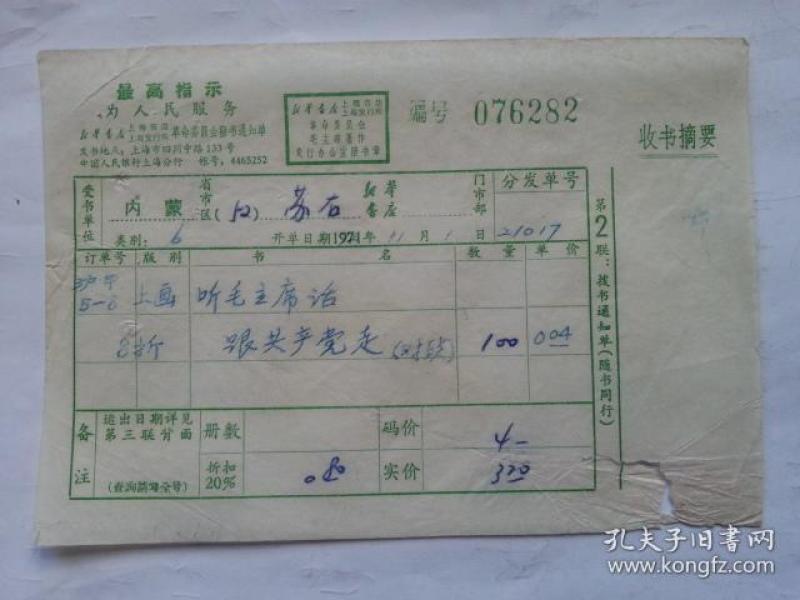 最高指示
为人民服务
新华书店 上海市店 上海发行所 革命委员会拨书通知单
发书地点：上海市四川中路133号
中国人民银行上海分行 帐号：4465252
新华书店 上海市店 上海发行所
革命委员会
毛主席著作
发行办公室拨书章
编号 076282
收书摘要
受书单位 内蒙 省市区(52) 苏右 新华书店 门市部 分发单号
类别：6 开单日期1971年11月1日 21017
订单号 版别 书名 数量 单价
5-6 上画 听毛主席话
8开 跟共产党走 100 004
备注 运出日期详见第三联背面 册数 码价 4-
(查询请写全号) 折扣20% .80 实价 320
第2联：拨书通知单(随书同行)
孔夫子旧书网
www.kongfz.com